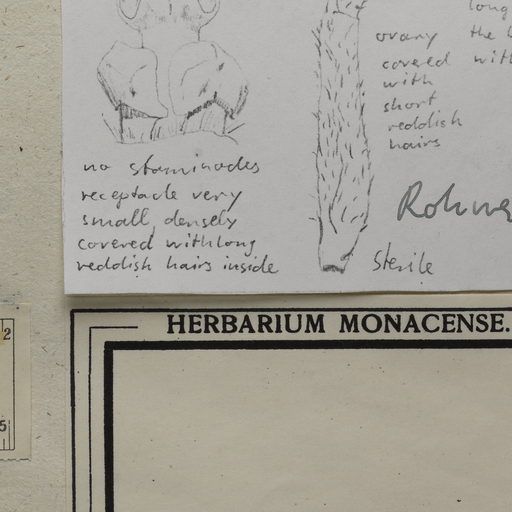 long
ovary the
covered with
with
short
reddish
hairs
no staminodes
receptacle very
small, densely
covered with long
reddish hairs inside
Sterile
HERBARIUM MONACENSE.
2
5